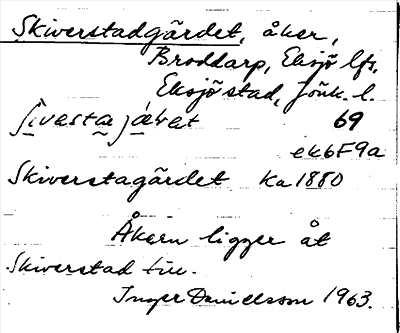 Skiverstadgärdet, åker,
Broddarp, Eksjö lfs,
Eksjö stad, Jönk. l.
ʃìvasta jǽṛat 69
ek6F9a
Skiverstagärdet Ka 1880
Åkern ligger åt
Skiverstad till.
Inger Danielsson 1963.